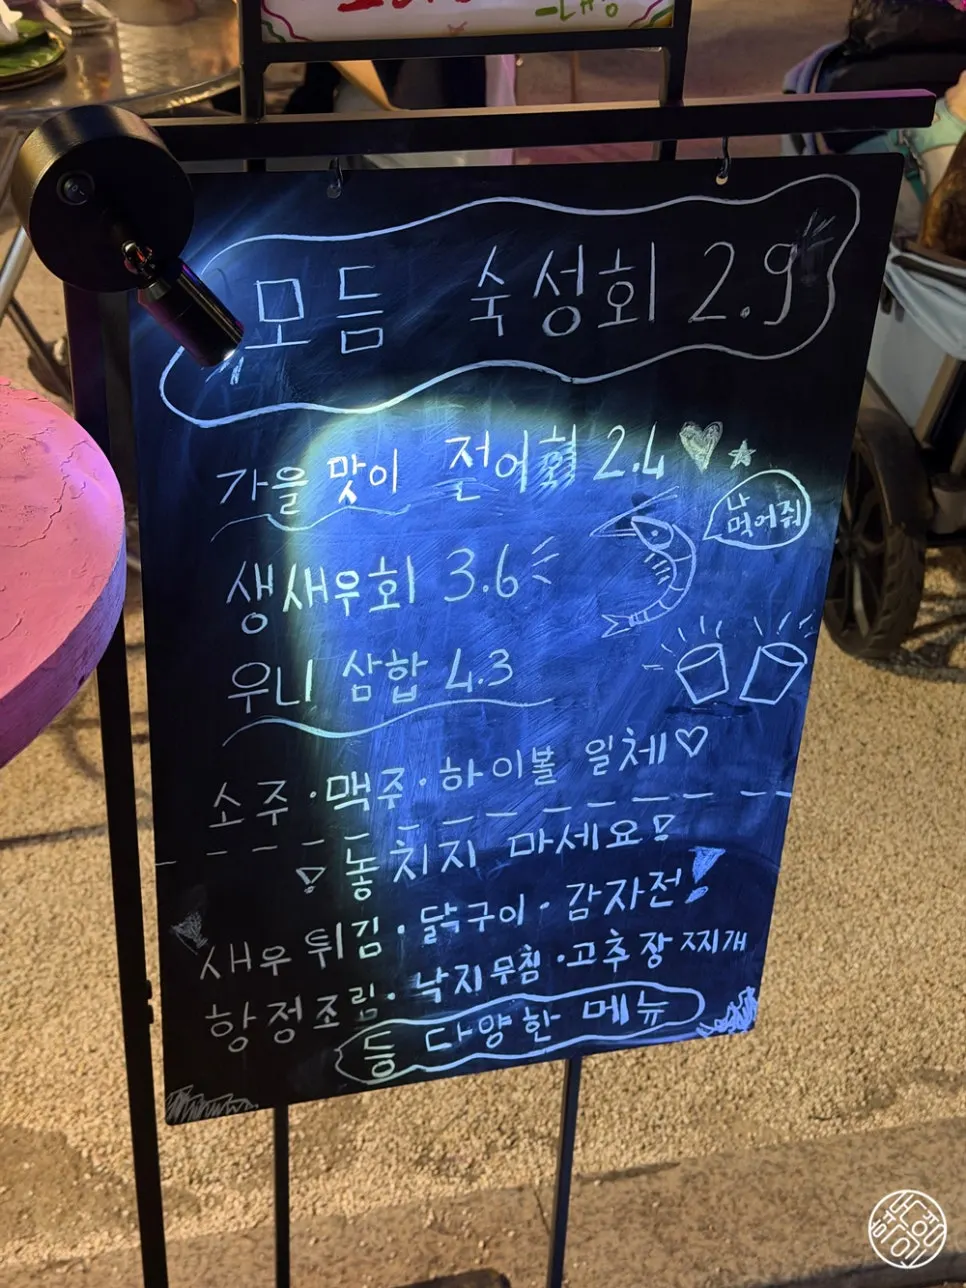 모듬 숙성회 2.9
가을 맞이 전어회 2.4
나
먹어줘
생새우회 3.6
우니 삼합 4.3
소주·맥주·하이볼 일체♡
놓치지 마세요!
새우튀김·닭구이·감자전!
항정조림·낙지무침·고추장찌개
등 다양한 메뉴